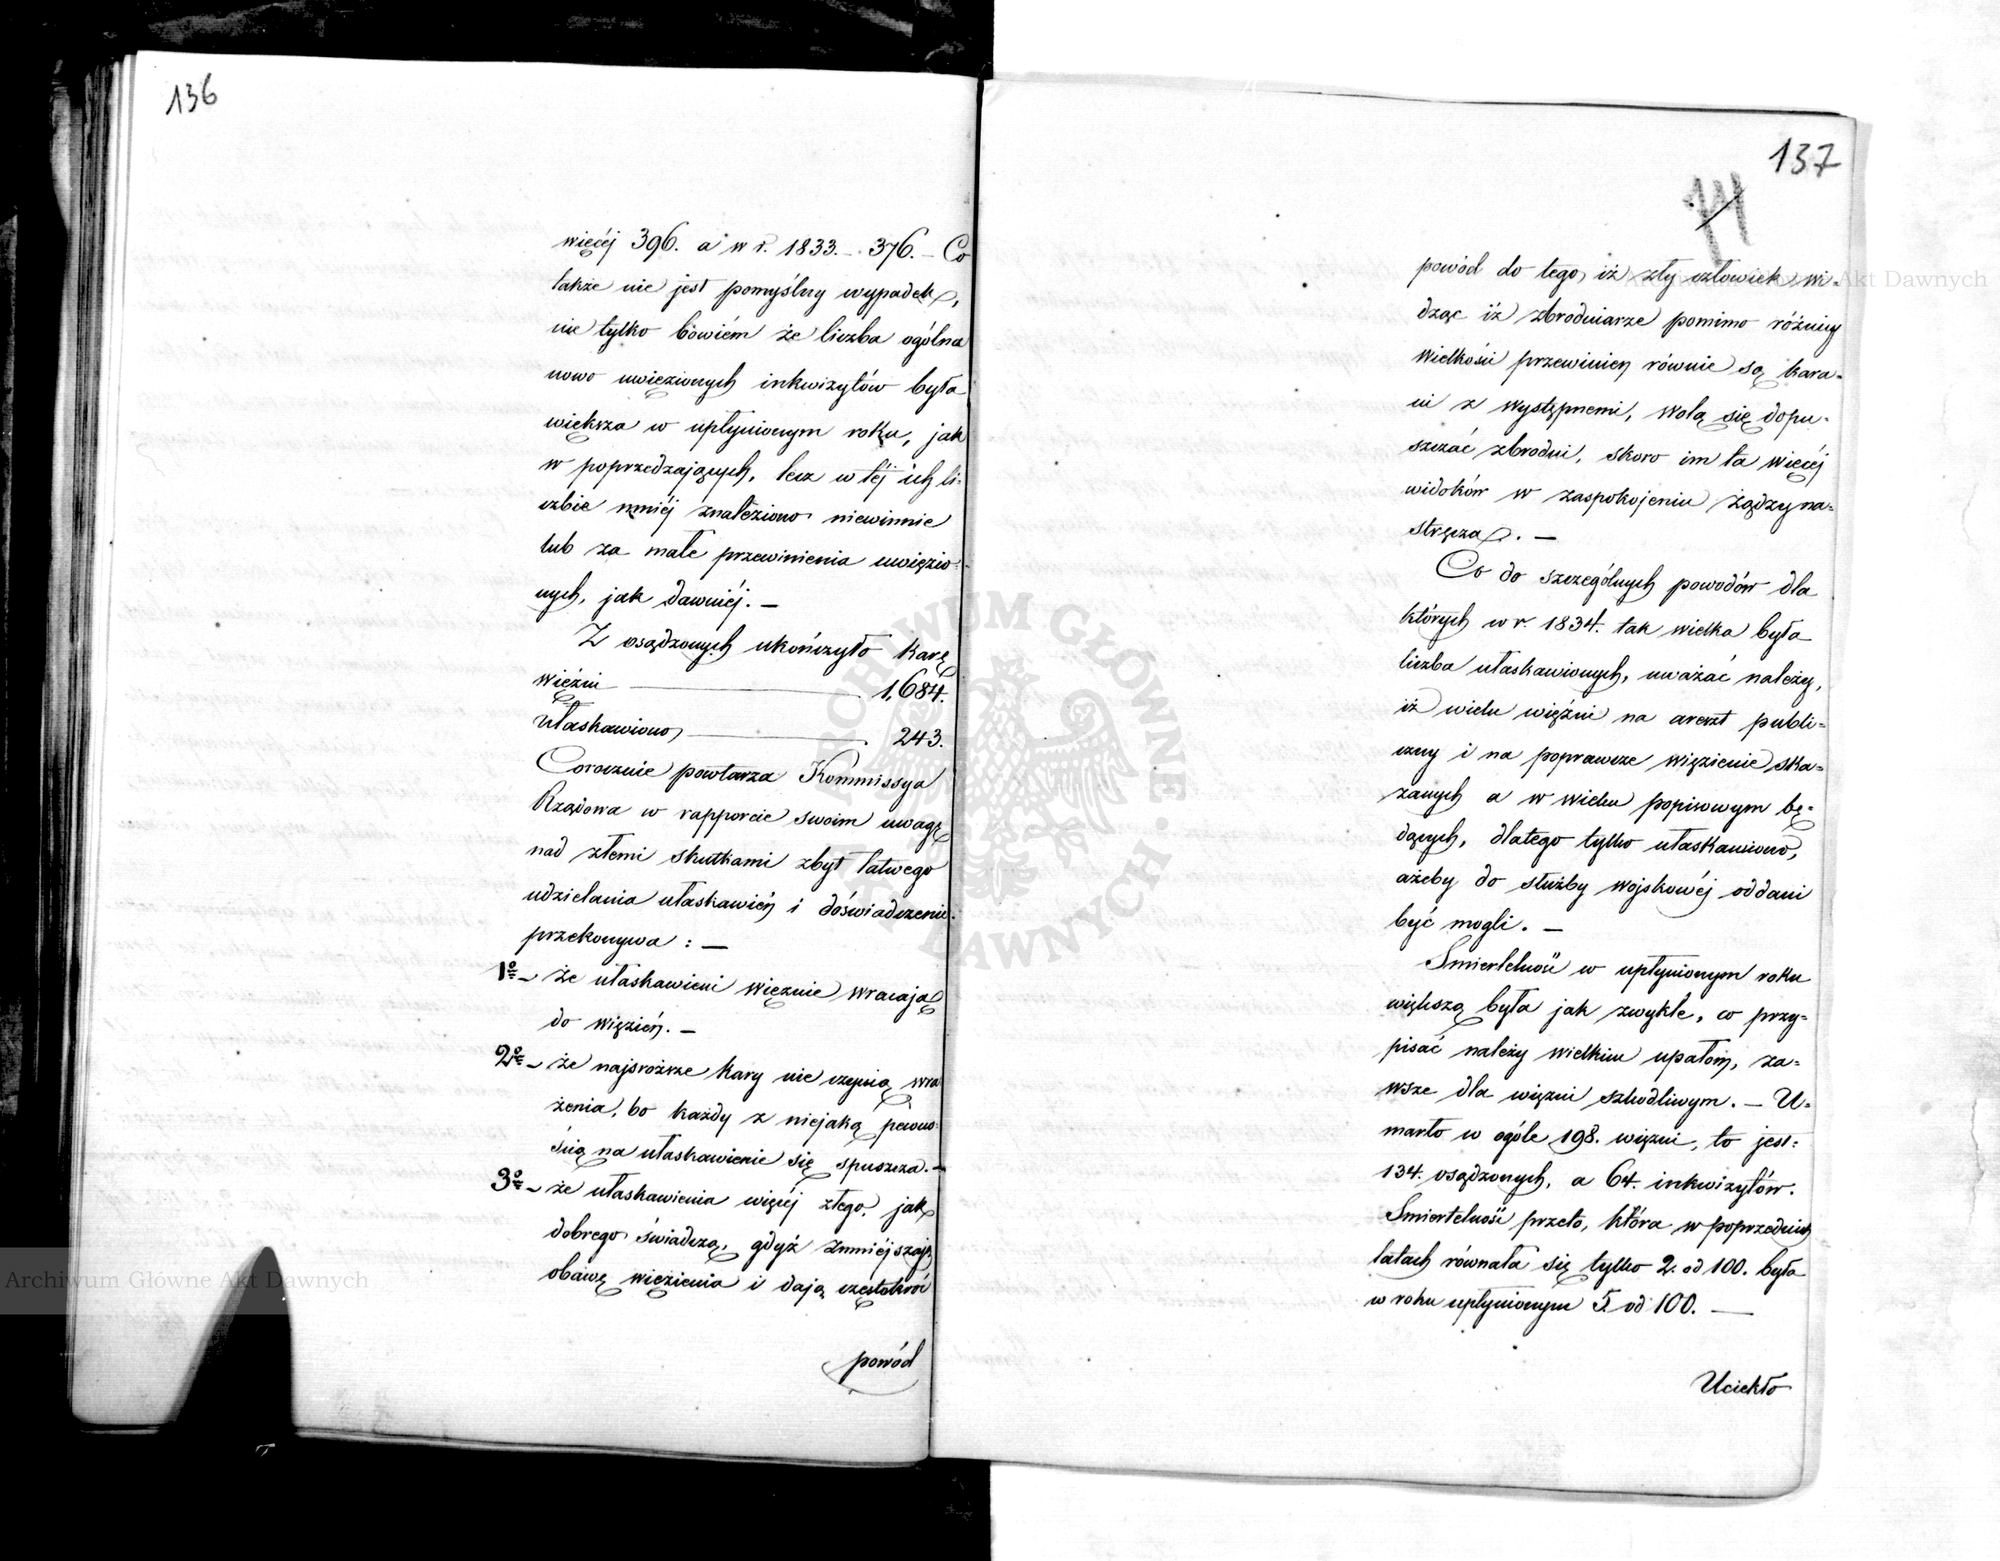 136
więcéj 396. a w r. 1833. – 376. – Co
także nie jest pomyślny wypadek,
nie tylko bowiém że liczba ogólna
nowo uwięzionych inkwizytów była
większa w upłynionym roku, jak
w poprzedzających, lecz w téj ich li-
czbie mniéj znaleziono niewinnie
lub za małe przewinienia uwięzio-
nych, jak dawniéj. –
Z osądzonych ukończyło karę
więźni 1,684.
ułaskawiono 243.
Corocznie powtarza Kommissya
Rządowa w rapporcie swoim uwagę
nad złemi skutkami zbyt łatwego
udzielania ułaskawień i doświadczenie
przekonywa : –
1º – że ułaskawieni więźnie wracają
do więzień. –
2º – że najsroższe kary nie czynią wra
żenia, bo każdy z niejaką pewno-
ścią na ułaskawienie się spuszcza. –
3º – że ułaskawienia więcéj złego, jak
dobrego świadczą, gdyż zmniéjszają
obawę więzienia i dają częstokroć
powód
137
powód do tego, iż zły człowiek wi-
dząc iż zbrodniarze pomimo różnicy
wielkości przewinień równie są kara-
ni z występnemi, wolą się dopu-
szczać zbrodni, skoro im ta więcéj
widoków w zaspokojeniu żądzy na-
stręcza. –
Co do szczególnych powodów dla
których w r. 1834. tak wielka była
liczba ułaskawionych, uważać należy,
iż wielu więźni na areszt publi-
czny i na poprawcze więzienie ska-
zanych a w wieku popisowym bę-
dących, dlatego tylko ułaskawiono,
ażeby do służby wojskowéj oddani
być mogli. –
Śmiertelność w upłynionym roku
większą była jak zwykle, co przy-
pisać należy wielkim upałom, za-
wsze dla więzni szkodliwym. – U-
marło w ogóle 198. więzni, to jest:
134. osądzonych, a 64. inkwizytów.
Śmiertelność przeto, która w poprzednich
latach równała się tylko 2. od 100. była
w roku upłynionym 5. od 100. –
Uciekło
Archiwum Główne Akt Dawnych